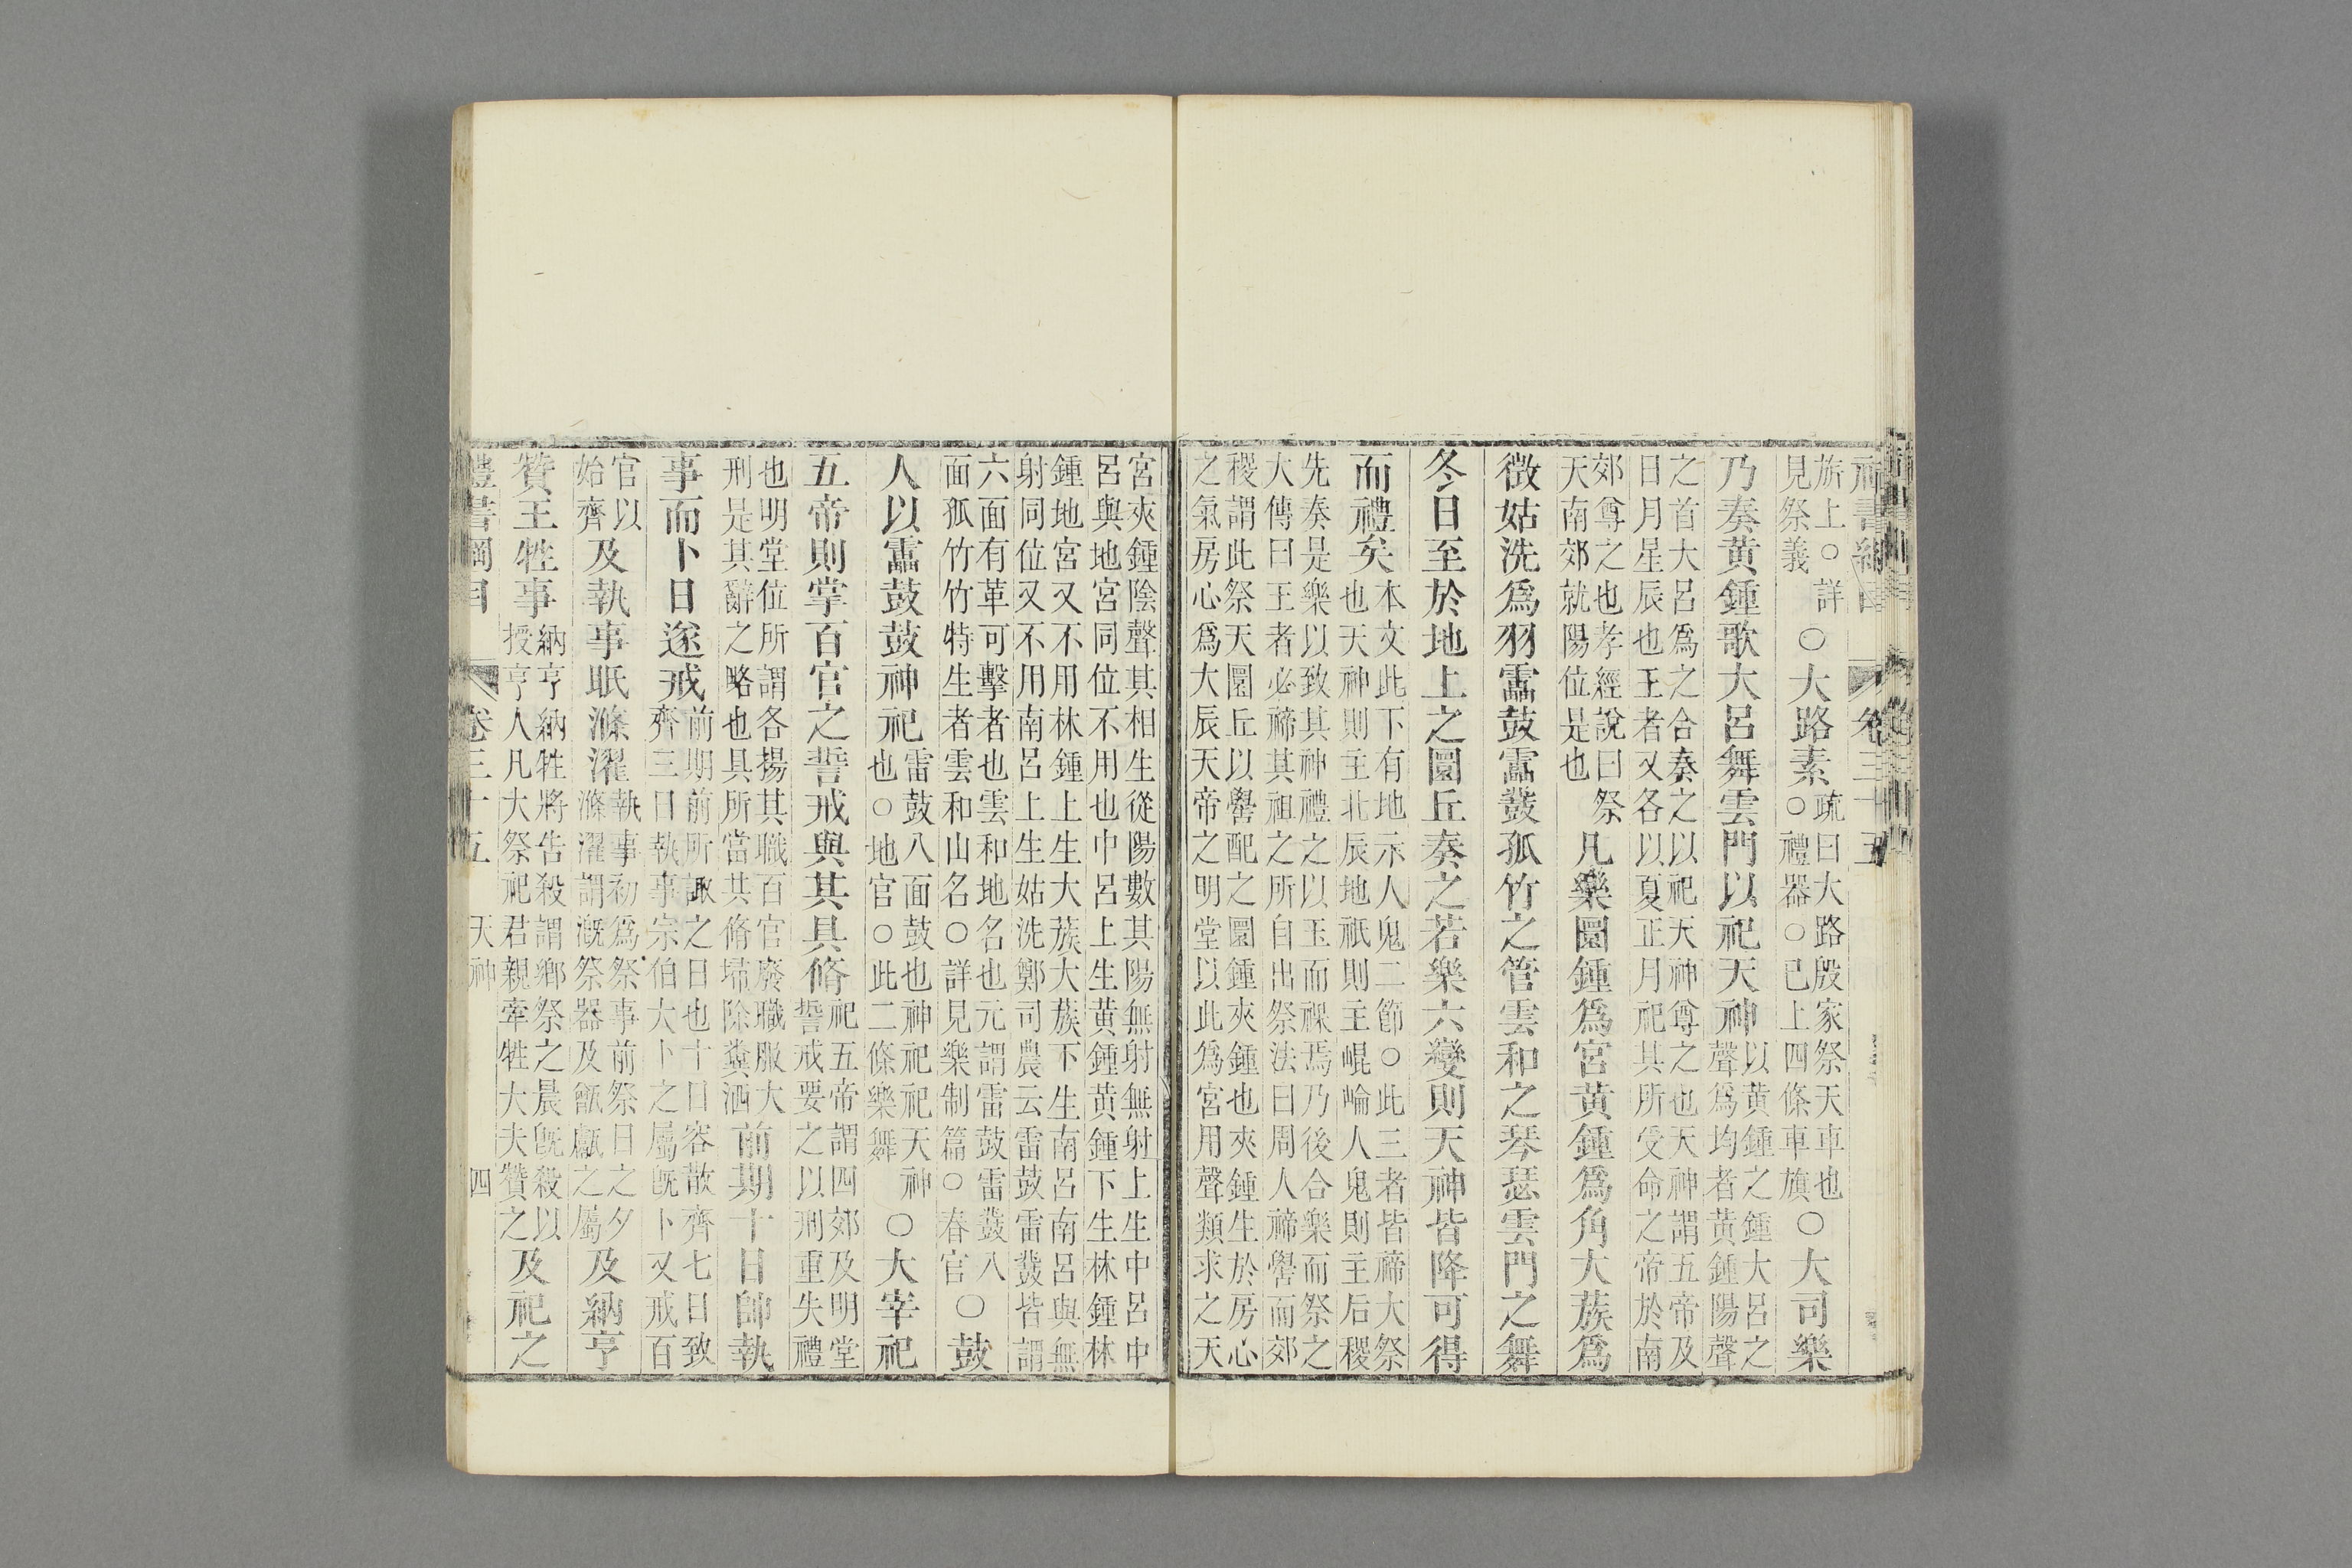 旂上○詳見祭義○大路素疏曰大路殷家祭天車也○禮器○已上四條車旗○大司樂
乃奏黃鍾歌大呂舞雲門以祀天神以黃鍾之鍾大呂之聲爲均者黃鍾陽聲
之首大呂爲之合奏之以祀天神尊之也天神謂五帝及日月星辰也王者又各以夏正月祀其所受命之帝於南
郊尊之也孝經說曰祭天南郊就陽位是也凡樂圜鍾爲宮黃鍾爲角大蔟爲
徵姑洗爲羽靁鼓靁鼗孤竹之管雲和之琴瑟雲門之舞
冬日至於地上之圜丘奏之若樂六變則天神皆降可得
而禮矣本文此下有地示人鬼二節○此三者皆禘大祭也天神則主北辰地祇則主崐崘人鬼則主后稷
先奏是樂以致其神禮之以玉而祼焉乃後合樂而祭之大傳曰王者必禘其祖之所自出祭法曰周人禘嚳而郊
稷謂此祭天圜丘以嚳配之圜鍾夾鍾也夾鍾生於房心之氣房心爲大辰天帝之明堂以此爲宮用聲類求之天
宮夾鍾陰聲其相生從陽數其陽無射無射上生中呂中呂與地宮同位不用也中呂上生黃鍾黃鍾下生林鍾林
鍾地宮又不用林鍾上生大蔟大蔟下生南呂南呂與無射同位又不用南呂上生姑洗鄭司農云雷鼓雷鼗皆謂
六面有革可擊者也雲和地名也元謂雷鼓雷鼗八面孤竹竹特生者雲和山名○詳見樂制篇○春官○鼓
人以靁鼓鼓神祀雷鼓八面鼓也神祀祀天神也○地官○此二條樂舞○大宰祀
五帝則掌百官之誓戒與其具脩祀五帝謂四郊及明堂誓戒要之以刑重失禮
也明堂位所謂各揚其職百官廢職服大刑是其辭之略也具所當共脩埽除糞洒前期十日帥執
事而卜日遂戒前期前所諏之日也十日容散齊七日致齊三日執事宗伯大卜之屬旣卜又戒百
官以始齊及執事眂滌濯執事初爲祭事前祭日之夕滌濯謂漑祭器及甑甗之屬及納亨
贊王牲事納亨納牲將告殺謂鄉祭之晨旣殺以授亨人凡大祭祀君親牽牲大夫贊之及祀之
禮書綱目 卷三十五 天神 四